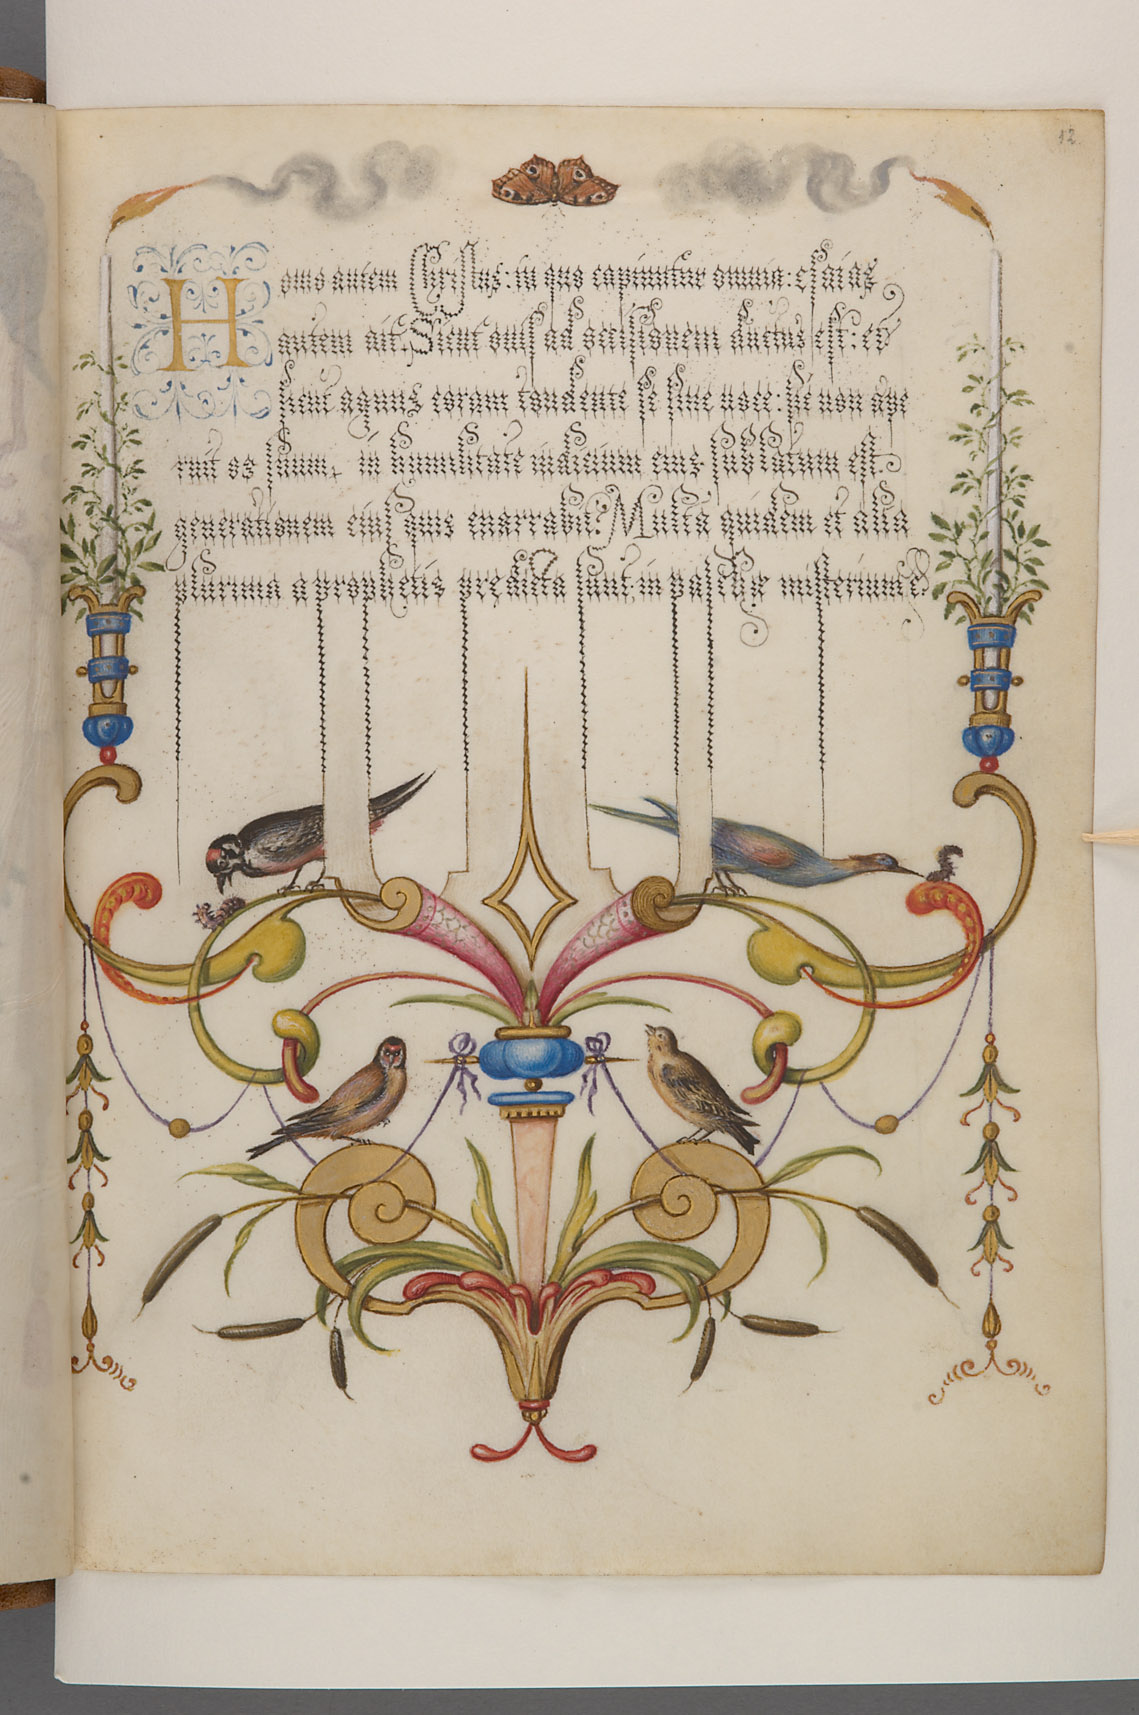 12
Homo autem Christus: in quo capiuntur omnia: esaias
autem ait. Sicut ouis ad occisionem ductus est: et
sicut agnus coram tondente se sine uoce: sic non ape
ruit os suum, in humilitate iudicium eius sublatum est.
generationem eius quis enarrabit? Multa quidem et alia
plurima a prophetis predicta sunt: in misterium